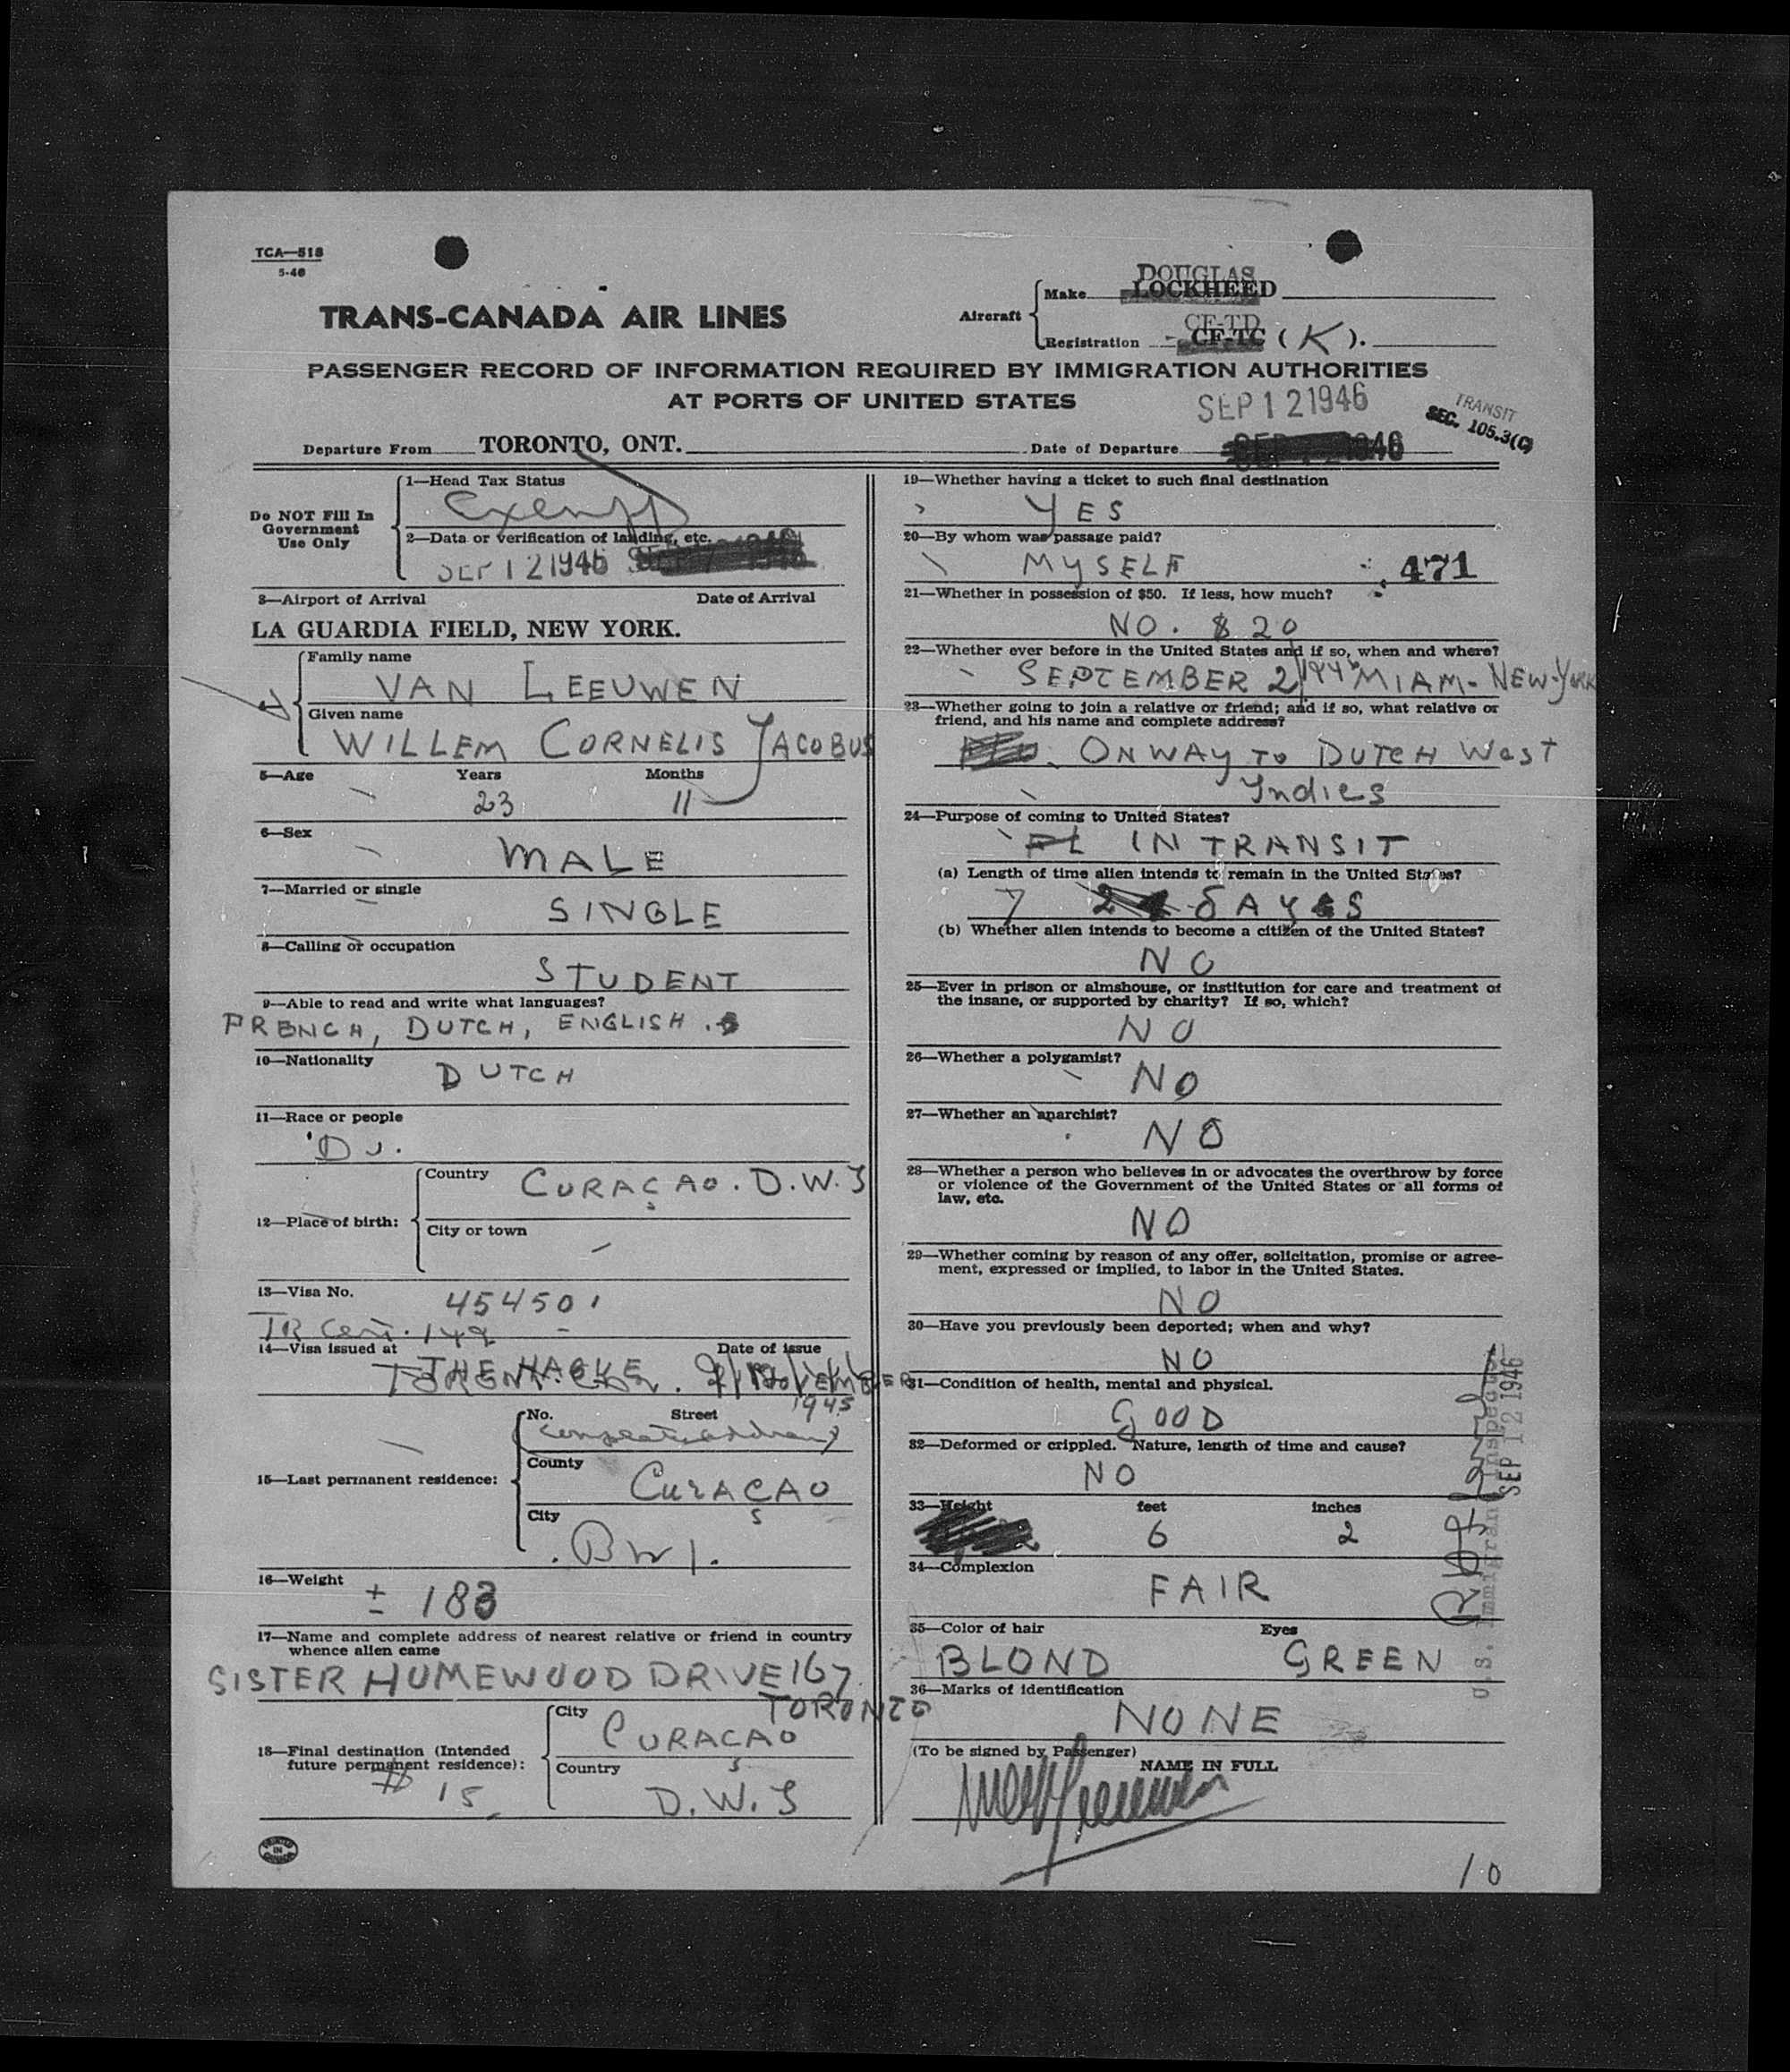 TCA—518
5-46
TRANS-CANADA AIR LINES
Aircraft
Make DOUGLAS
LOCKHEED
Registration CF-TD
CF-TC (K).
PASSENGER RECORD OF INFORMATION REQUIRED BY IMMIGRATION AUTHORITIES
AT PORTS OF UNITED STATES
SEP 12 1946
TRANSIT
SEC. 105.3(C)
Departure From TORONTO, ONT.
Date of Departure 1946
Do NOT Fill In
Government
Use Only
1—Head Tax Status
Exempt
2—Data or verification of landing, etc.
SEP 12 1946
3—Airport of Arrival Date of Arrival
LA GUARDIA FIELD, NEW YORK.
Family name
VAN LEEUWEN
Given name
WILLEM CORNELIS JACOBUS
5—Age Years Months
23 11
6—Sex
MALE
7—Married or single
SINGLE
8—Calling or occupation
STUDENT
9—Able to read and write what languages?
FRENCH, DUTCH, ENGLISH.
10—Nationality
DUTCH
11—Race or people
DU.
12—Place of birth:
Country CURACAO. D.W.I
City or town
13—Visa No.
454501
TR Cert. 142
14—Visa issued at Date of issue
THE HAGUE
1945
15—Last permanent residence:
No. Street
County
CURACAO
City
BWI.
16—Weight
± 183
17—Name and complete address of nearest relative or friend in country
whence alien came
SISTER HUMEWOOD DRIVE 167
TORONTO
18—Final destination (Intended
future permanent residence):
City
CURACAO
Country
D.W.I
# 15
PRINTED
IN
CANADA
19—Whether having a ticket to such final destination
YES
20—By whom was passage paid?
MYSELF
471
21—Whether in possession of $50. If less, how much?
NO. $ 20
22—Whether ever before in the United States and if so, when and where?
SEPTEMBER 2/1946 MIAM- NEW-YORK
23—Whether going to join a relative or friend; and if so, what relative or
friend, and his name and complete address?
ON WAY TO DUTCH WEST
Indies
24—Purpose of coming to United States?
IN TRANSIT
(a) Length of time alien intends to remain in the United States?
7 DAYS
(b) Whether alien intends to become a citizen of the United States?
NO
25—Ever in prison or almshouse, or institution for care and treatment of
the insane, or supported by charity? If so, which?
NO
26—Whether a polygamist?
NO
27—Whether an anarchist?
NO
28—Whether a person who believes in or advocates the overthrow by force
or violence of the Government of the United States or all forms of
law, etc.
NO
29—Whether coming by reason of any offer, solicitation, promise or agree-
ment, expressed or implied, to labor in the United States.
NO
30—Have you previously been deported; when and why?
NO
31—Condition of health, mental and physical.
GOOD
32—Deformed or crippled. Nature, length of time and cause?
NO
33—Height feet inches
6 2
34—Complexion
FAIR
35—Color of hair Eyes
BLOND GREEN
36—Marks of identification
NONE
(To be signed by Passenger)
NAME IN FULL
U.S. Immigrant Inspector
SEP 12 1946
10